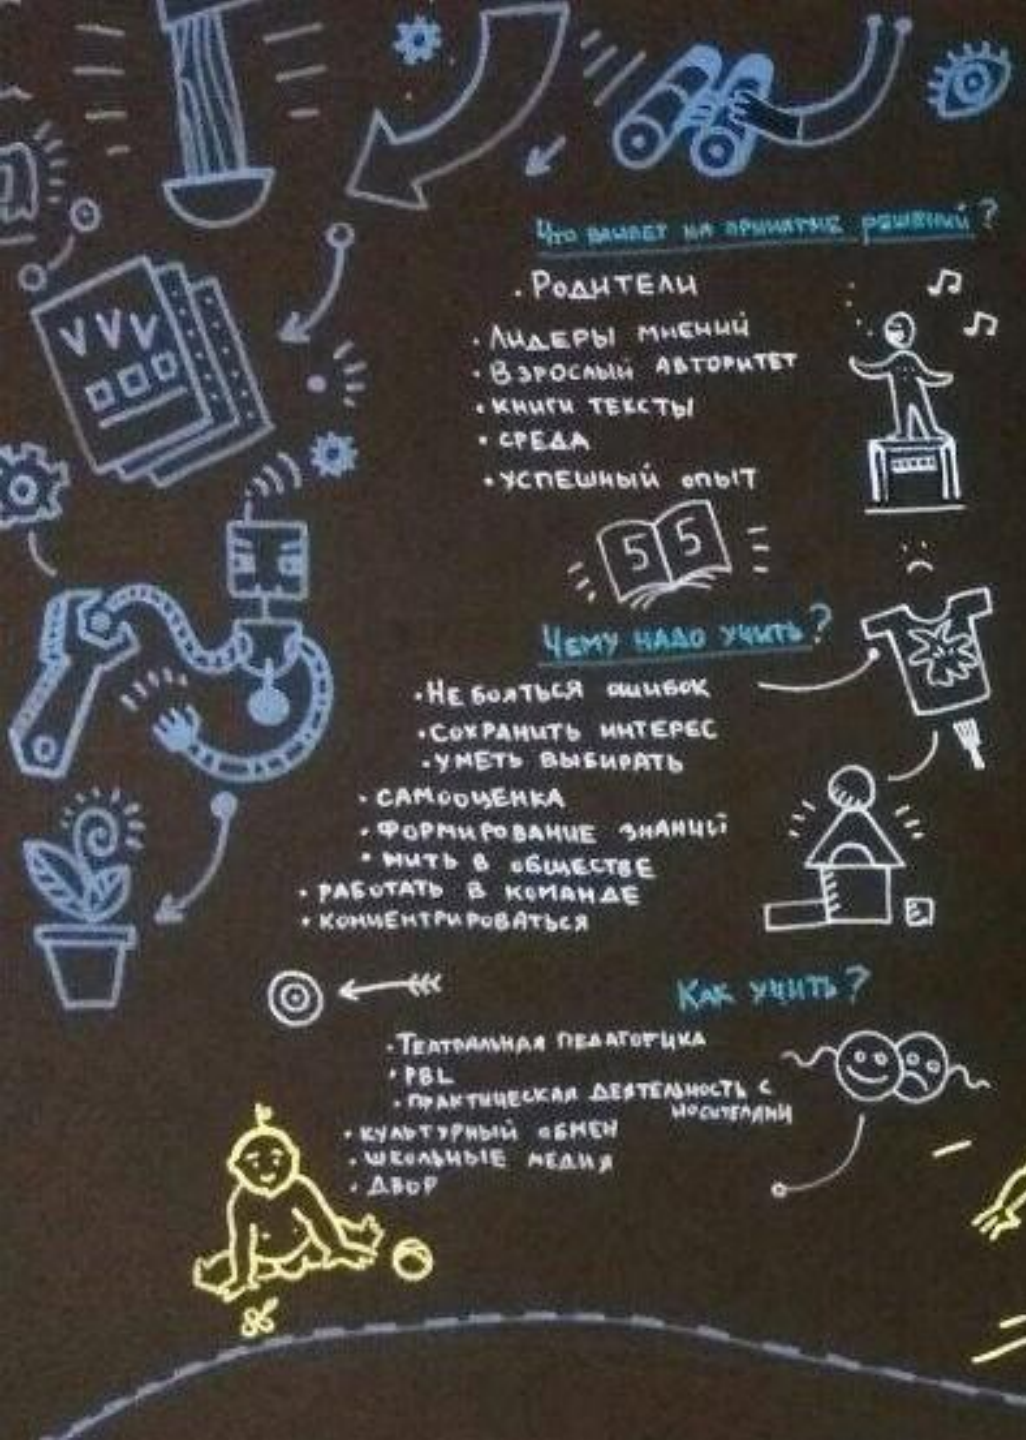 Что влияет на принятие решений?
• Родители
• Лидеры мнений
• Взрослый авторитет
• книги тексты
• среда
• успешный опыт
5 5
Чему надо учить?
• Не бояться ошибок
• Сохранить интерес
• уметь выбирать
• самооценка
• формирование знаний
• жить в обществе
• работать в команде
• концентрироваться
Как учить?
• Театральная педагогика
• PBL
• практическая деятельность с
носителями
• культурный обмен
• школьные медиа
• двор